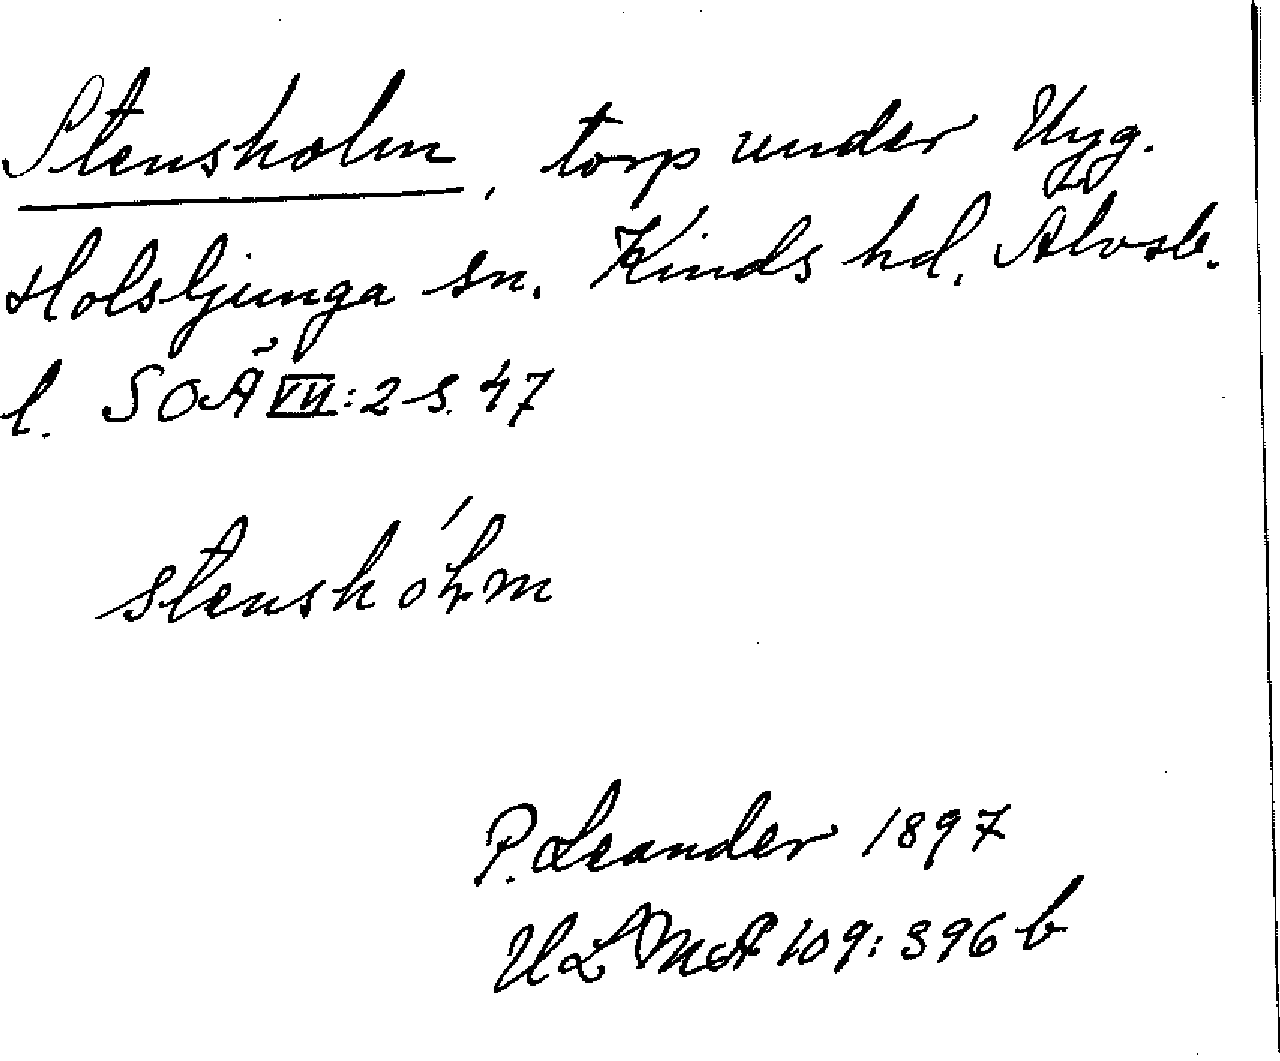 Stensholm, torp under Uyg.
Holsljunga sn. Kinds hd. Älvsb.
l. SOÄ VII:2 s. 47
stenshólm
P. Leander 1897
ULMA 109: 396 b